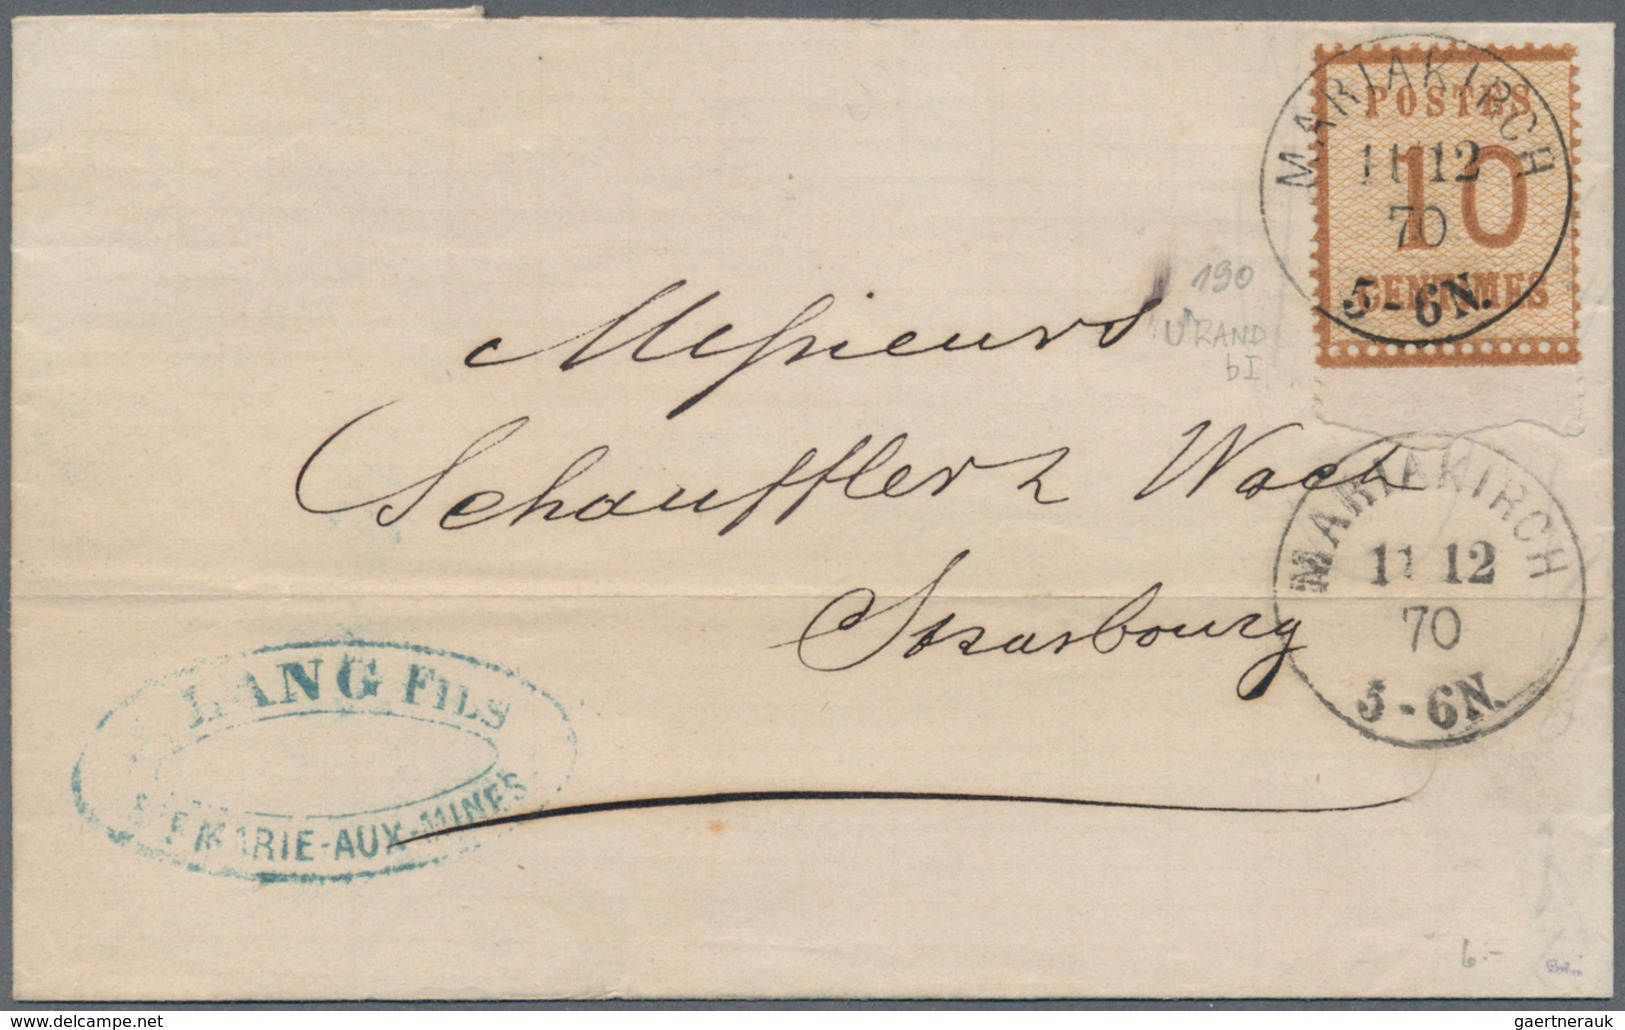 MARIAKIRCH
POSTES
11 12
10
70
CENTIMES
5-6N.
190
U'RAND
bI
Messieurs
Schauffler & Wach
Strasbourg
MARIAKIRCH
11 12
70
5-6N.
LANG FILS
STE MARIE-AUX-MINES
6.-
www.delcampe.net
gaertnerauk